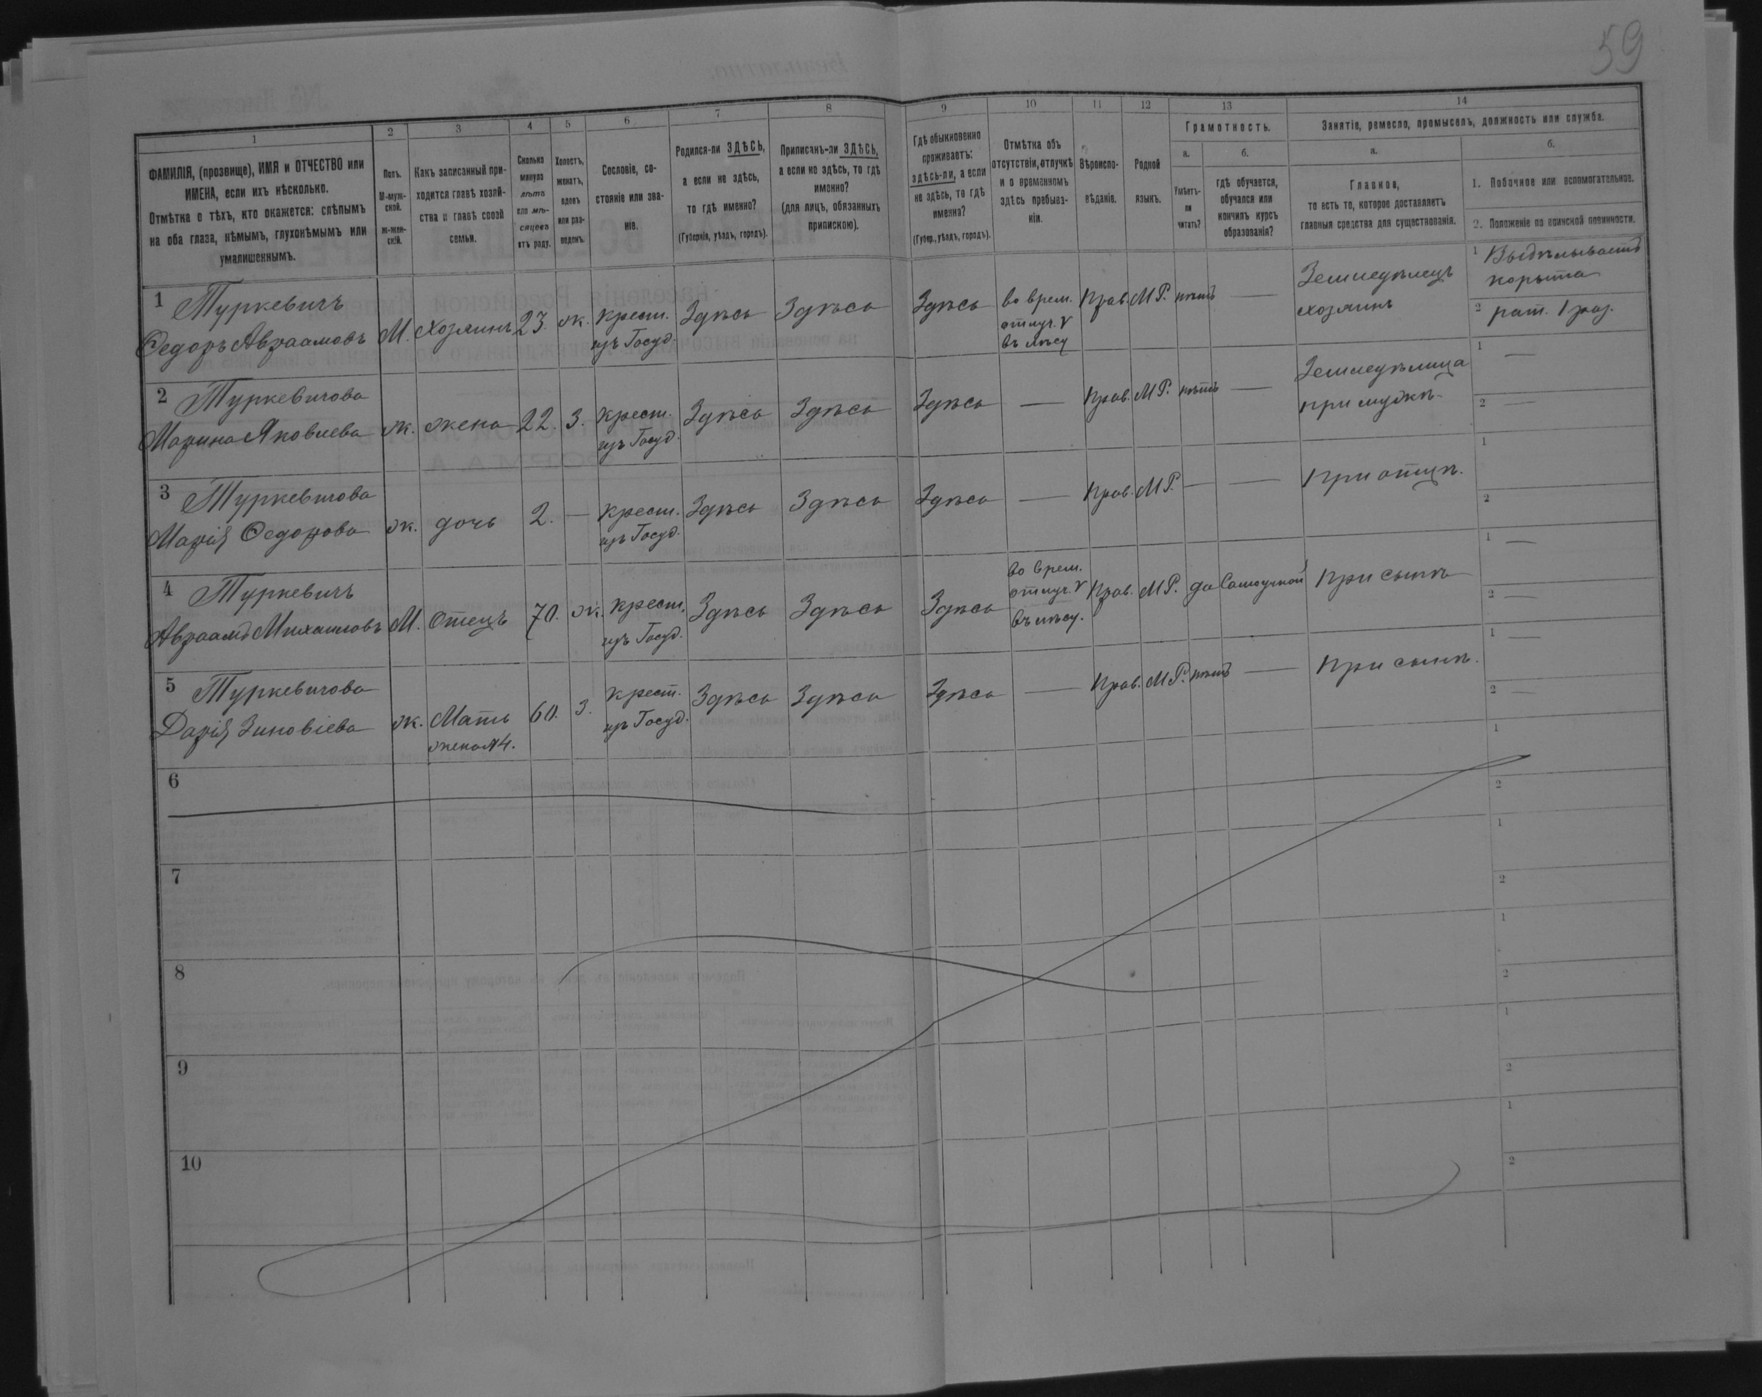 59
1
2
3
4
5
6
7
8
9
10
11
12
13
14
ФАМИЛІЯ, (прозвище), ИМЯ и ОТЧЕСТВО или
ИМЕНА, если ихъ нѣсколько.
Отмѣтка о тѣхъ, кто окажется: слѣпымъ
на оба глаза, нѣмымъ, глухонѣмымъ или
умалишеннымъ.
Полъ.
М-муж-
ской.
Ж-жен-
скій.
Какъ записанный при-
ходится главѣ хозяй-
ства и главѣ своей
семьи.
Сколько
минуло
лѣтъ
или мѣ-
сяцевъ
отъ роду.
Холостъ,
женатъ,
вдовъ
или раз-
веденъ.
Сословіе, со-
стояніе или зва-
ніе.
Родился-ли ЗДѢСЬ,
а если не здѣсь,
то гдѣ именно?
(Губернія, уѣздъ, городъ).
Приписанъ-ли ЗДѢСЬ,
а если не здѣсь, то гдѣ
именно?
(для лицъ, обязанныхъ
припискою).
Гдѣ обыкновенно
проживаетъ:
здѣсь-ли, а если
не здѣсь, то гдѣ
именно?
(Губер., уѣздъ, городъ).
Отмѣтка объ
отсутствіи, отлучкѣ
и о временномъ
здѣсь пребыва-
ніи.
Вѣроиспо-
вѣданіе.
Родной
языкъ.
Грамотность.
а.
Умѣетъ-
ли
читать?
б.
гдѣ обучается,
обучался или
кончилъ курсъ
образованія?
Занятіе, ремесло, промыселъ, должность или служба.
а.
Главное,
то есть то, которое доставляетъ
главныя средства для существованія.
б.
1. Побочное или вспомогательное.
2. Положеніе по воинской повинности.
1 Туркевичъ
Федоръ Авраамовъ М. хозяинъ 23. ж. крест. изъ Госуд. Здѣсь Здѣсь Здѣсь во врем. отлуч. въ лѣсу Прав. М.Р. нѣтъ — Земледѣлецъ хозяинъ
1 Выдѣлываетъ корыта
2 рат. 1 раз.
2 Туркевичова
Марина Яковлева ж. жена 22. З. крест. изъ Госуд. Здѣсь Здѣсь Здѣсь — Прав. М.Р. нѣтъ — Земледѣлица при мужѣ
1 —
2 —
3 Туркевичова
Марія Федорова ж. дочь 2. — крест. изъ Госуд. Здѣсь Здѣсь Здѣсь — Прав. М.Р. — — При отцѣ.
1
2
4 Туркевичъ
Авраамъ Михаиловъ М. Отецъ 70. ж. крест. изъ Госуд. Здѣсь Здѣсь Здѣсь во врем. отлуч. въ лѣсу. Прав. М.Р. да Самоучкой При сынѣ
1 —
2 —
5 Туркевичова
Дарія Зиновіева ж. Мать жена №4. 60. З. крест. изъ Госуд. Здѣсь Здѣсь Здѣсь — Прав. М.Р. нѣтъ — При сынѣ.
1 —
2 —
6
1
2
7
1
2
8
1
2
9
1
2
10
1
2